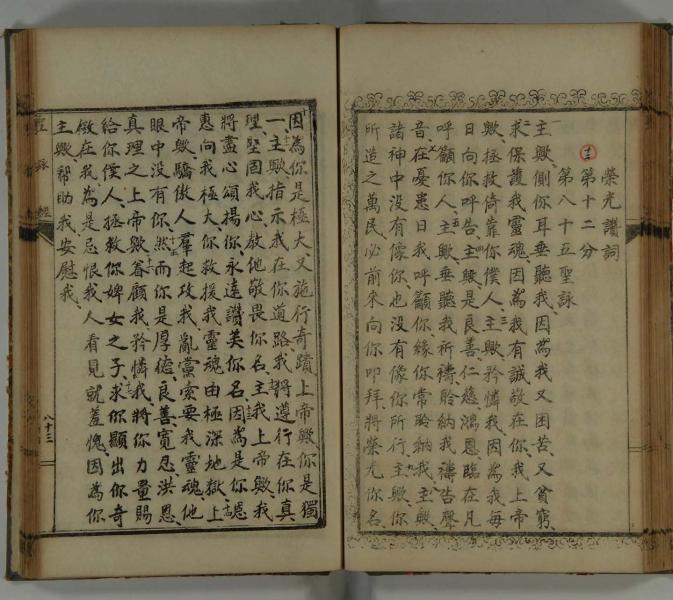 榮光讚詞
第十二分
第八十五聖詠
主歟側你耳垂聽我因爲我又困苦又貧窮
求保護我靈魂因爲我有誠敬在你我上帝
歟拯救倚靠你僕人主歟矜憐我因爲我每
日向你呼告主歟是良善仁慈鴻恩臨在凡
呼籲你人主歟垂聽我祈禱聆納我禱告聲
音在憂患日我呼籲你緣你常聆納我主歟
諸神中沒有像你也沒有像你所行主歟你
所造之萬民必前來向你叩拜將榮光你名
因為你是極大又施行奇蹟上帝歟你是獨
一主歟指示我在你道路我將遵行在你真
理堅固我心教他敬畏你名主我上帝歟我
將盡心頌揚你永遠讚美你名因為是你恩
惠向我極大你救援我靈魂由極深地獄上
帝歟驕傲人羣起攻我亂黨索要我靈魂他
眼中沒有你然而你是厚德良善寬忍洪恩
真理之上帝歟眷顧我矜憐我將你力量賜
給你僕人拯救你婢女之子求你顯出你奇
徵在我為是忌恨我人看見就羞愧因為你
主歟幫助我安慰我
聖詠經
八十三